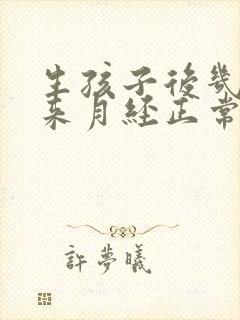 生孩子後幾
来月经正常
許夢曦